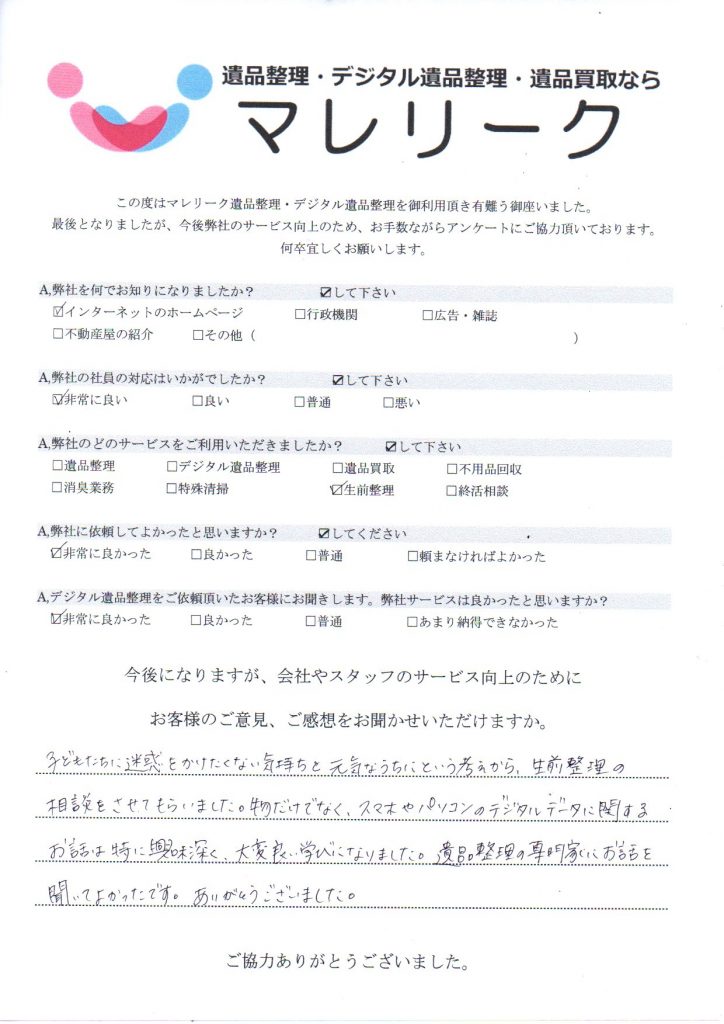 遺品整理・デジタル遺品整理・遺品買取なら
マレリーク
この度はマレリーク遺品整理・デジタル遺品整理を御利用頂き有難う御座いました。
最後となりましたが、今後弊社のサービス向上のため、お手数ながらアンケートにご協力頂いております。
何卒宜しくお願いします。
A,弊社を何でお知りになりましたか？ ☑して下さい
☑インターネットのホームページ □行政機関 □広告・雑誌
□不動産屋の紹介 □その他（ ）
A,弊社の社員の対応はいかがでしたか？ ☑して下さい
☑非常に良い □良い □普通 □悪い
A,弊社のどのサービスをご利用いただきましたか？ ☑して下さい
□遺品整理 □デジタル遺品整理 □遺品買取 □不用品回収
□消臭業務 □特殊清掃 ☑生前整理 □終活相談
A,弊社に依頼してよかったと思いますか？ ☑してください
☑非常に良かった □良かった □普通 □頼まなければよかった
A,デジタル遺品整理をご依頼頂いたお客様にお聞きします。弊社サービスは良かったと思いますか？
☑非常に良かった □良かった □普通 □あまり納得できなかった
今後になりますが、会社やスタッフのサービス向上のために
お客様のご意見、ご感想をお聞かせいただけますか。
子どもたちに迷惑をかけたくない気持ちと元気なうちにという考えから、生前整理の
相談をさせてもらいました。物だけでなく、スマホやパソコンのデジタルデータに関する
お話は特に興味深く、大変良い学びになりました。遺品整理の専門家にお話を
聞いてよかったです。ありがとうございました。
ご協力ありがとうございました。